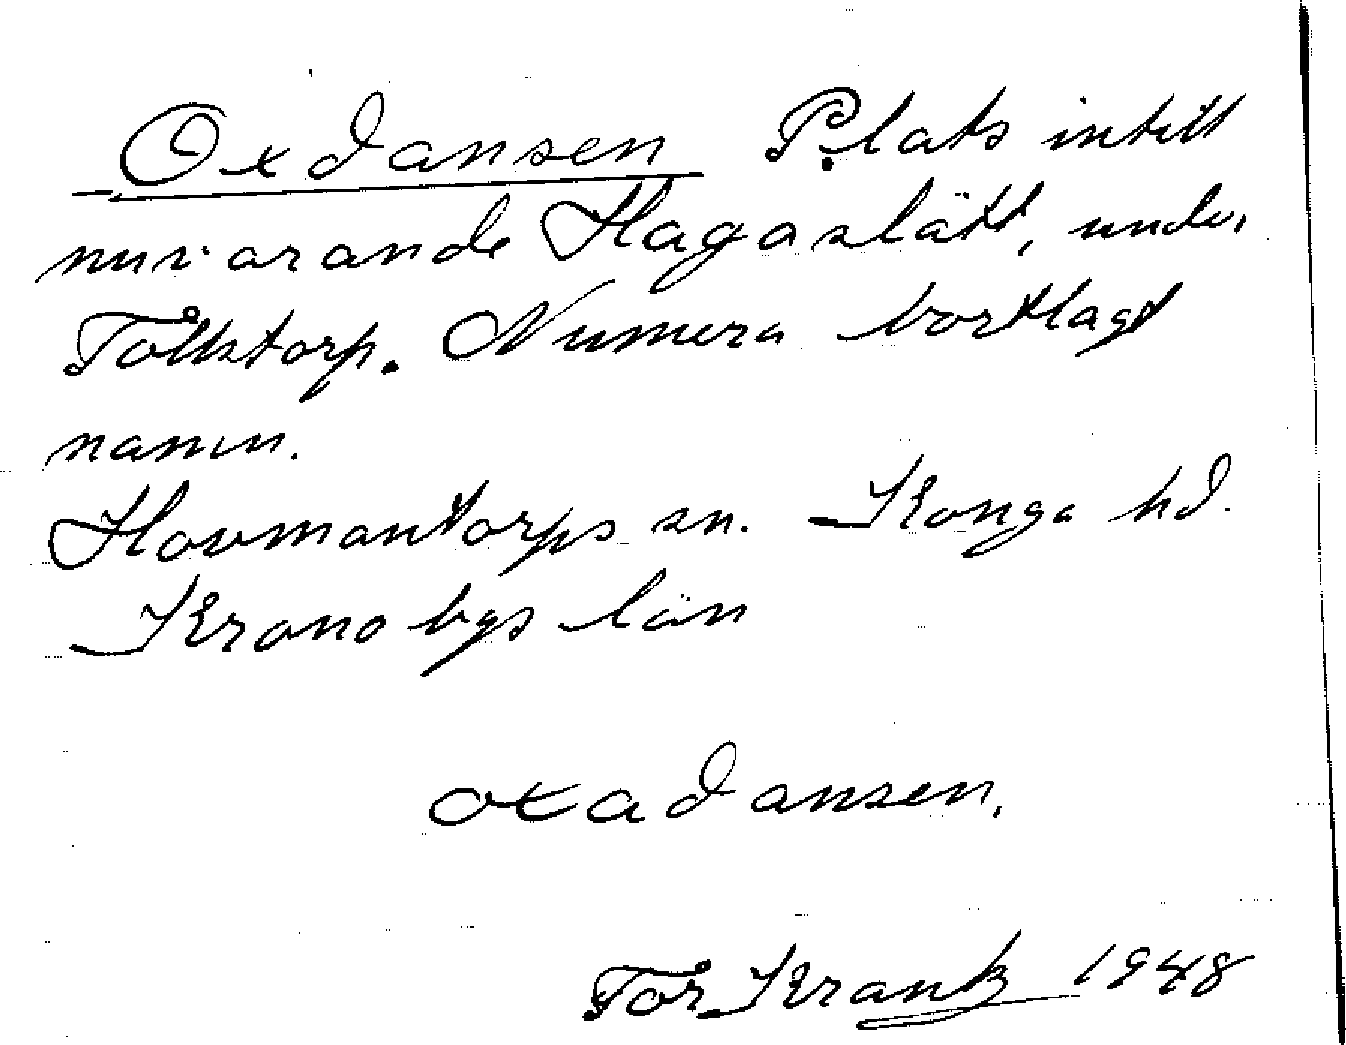 Oxdansen Plats intill
nuvarande Hagaslätt, under
Tolkstorp. Numera bortlagt
namn.
Hovmantorps sn. Konga hd.
Kronobgs län
oxadansen.
Tor Krantz 1948